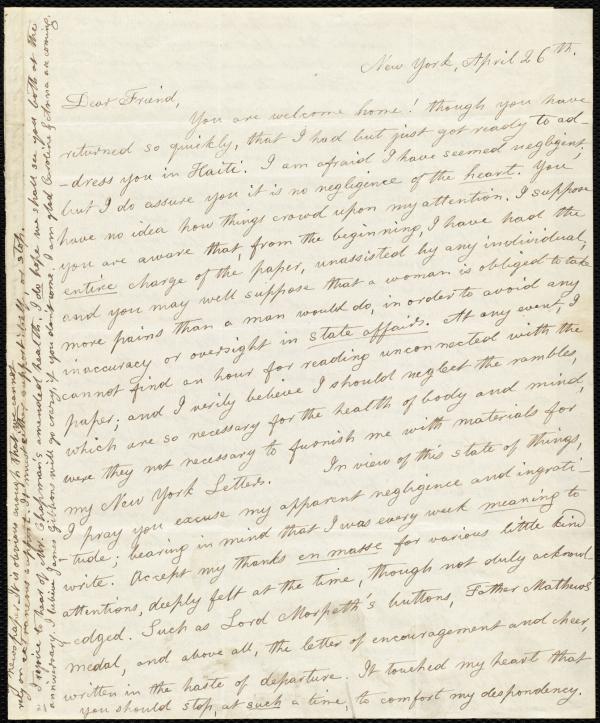 New York, April 26th.
Dear Friend,
You are welcome home! though you have
returned so quickly, that I had but just got ready to ad-
-dress you in Haiti. I am afraid I have seemed negligent,
but I do assure you it is no negligence of the heart. You
have no idea how things crowd upon my attention. I suppose
you are aware that, from the beginning, I have had the
entire charge of the paper, unassisted by any individual,
and you may well suppose that a woman is obliged to take
more pains than a man would do, in order to avoid any
inaccuracy or oversight in state affairs. At any event, I
cannot find an hour for reading unconnected with the
paper; and I verily believe I should neglect the rambles,
which are so necessary for the health of body and mind,
were they not necessary to furnish me with materials for
my New York Letters. In view of this state of things,
I pray you excuse my apparent negligence and ingrati-
-tude; bearing in mind that I was every week meaning to
write. Accept my thanks en masse for various little kind
attentions, deeply felt at the time, though not duly acknowl-
-edged. Such as Lord Morpeth's buttons, Father Mathew's
medal, and above all, the letter of encouragement and cheer,
written in the haste of departure. It touched my heart that
you should stop, at such a time, to comfort my despondency.
newspaper. It is obvious enough that we cannot
rely on extraneous support. It must either support itself, or stop.
I rejoice to hear of Mr. Chapman's amended health. I do hope we shall see you both at the
anniversary. I believe James Gibbons will go crazy, if you don't come. I am glad Caroline & Anna are coming.